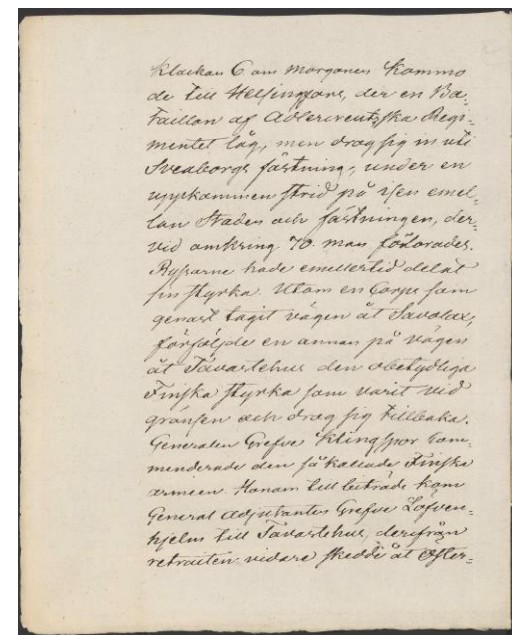 klockan 6 om morgonen kommo
de till Helsingfors, der en Ba-
taillon af Adlercreutzska Regi-
mentet låg, men drog sig in uti
Sveaborgs fästning, under en
uppkommen strid på isen emel-
lan Staden och fästningen, der-
vid omkring 70 man förlorades.
Ryssarne hade emellertid delat
sin styrka. Utom en Corps som
genast tagit vägen åt Savolax,
förföljde en annan på vägen
åt Tavastehus den obetydliga
Finska styrka som varit vid
gränsen och drog sig tillbaka.
Generalen Grefve Klingspor com-
menderade den så kallade Finska
armeen. Honom till biträde kom
General Adjutanten Grefve Löfven-
hjelm till Tavastehus, derifrån
retraiten vidare skedde åt Öster-